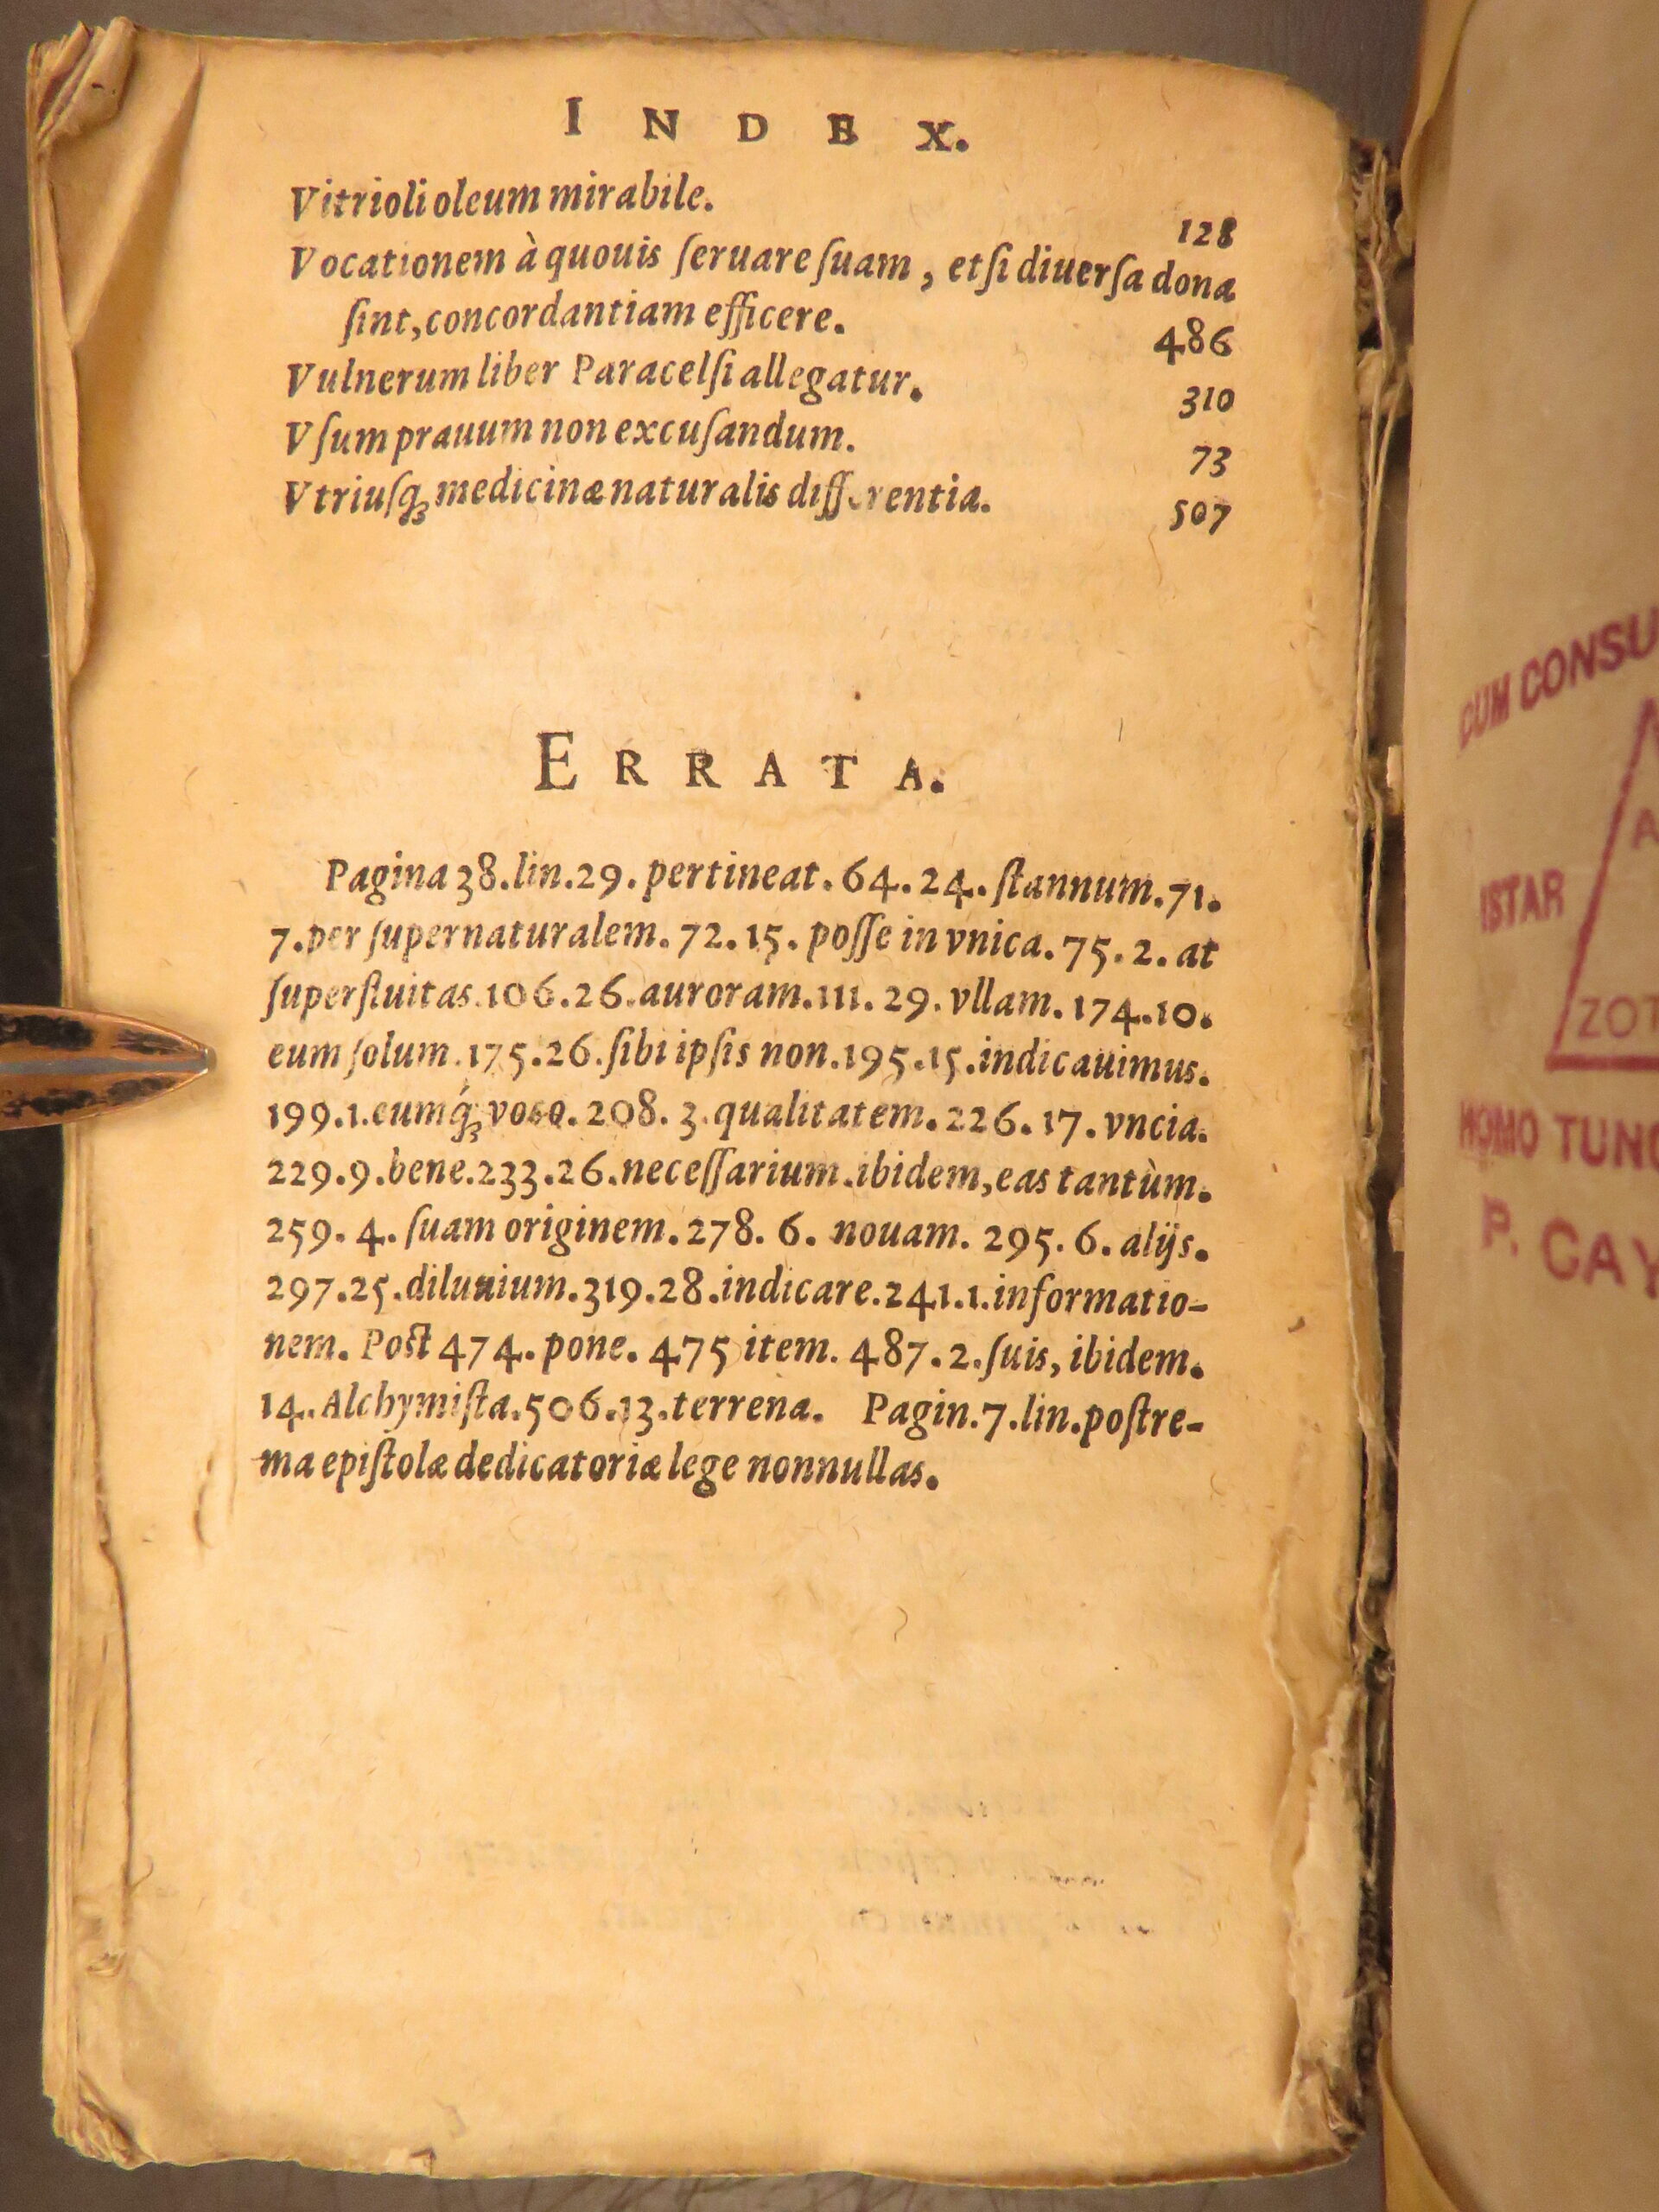 INDEX.
Vitrioli oleum mirabile. 128
Vocationem à quouis ſeruare ſuam, etſi diuerſa dona
ſint, concordantiam efficere. 486
Vulnerum liber Paracelſi allegatur. 310
Vſum prauum non excuſandum. 73
Vtriuſq; medicinæ naturalis differentia. 507
ERRATA.
Pagina 38. lin. 29. pertineat. 64. 24. ſtannum. 71.
7. per ſupernaturalem. 72. 15. poſſe in vnica. 75. 2. at
ſuperfluitas. 106. 26. auroram. 111. 29. vllam. 174. 10.
eum ſolum. 175. 26. ſibi ipſis non. 195. 15. indicauimus.
199. 1. eumq́; 208. 3. qualitatem. 226. 17. vncia.
229. 9. bene. 233. 26. neceſſarium. ibidem, eas tantùm.
259. 4. ſuam originem. 278. 6. nouam. 295. 6. alijs.
297. 25. diluuium. 319. 28. indicare. 241. 1. informatio-
nem. Poſt 474. pone. 475 item. 487. 2. ſuis, ibidem.
14. Alchymiſta. 506. 13. terrena. Pagin. 7. lin. poſtre-
ma epiſtolæ dedicatoriæ lege nonnullas.
CUM CONSU
A
ISTAR
ZOT
HOMO TUNC
P. GAY